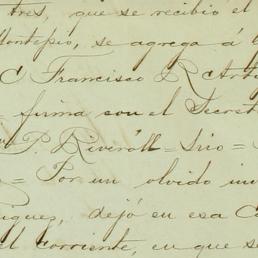 tres, que se recibió el
Montepío, se agrega á
C Francisco R Art
= firma con el Secret
P. Riveroll = Srio =
= Por un olvido inv
igues, dejó en esa C
el corriente, en que se